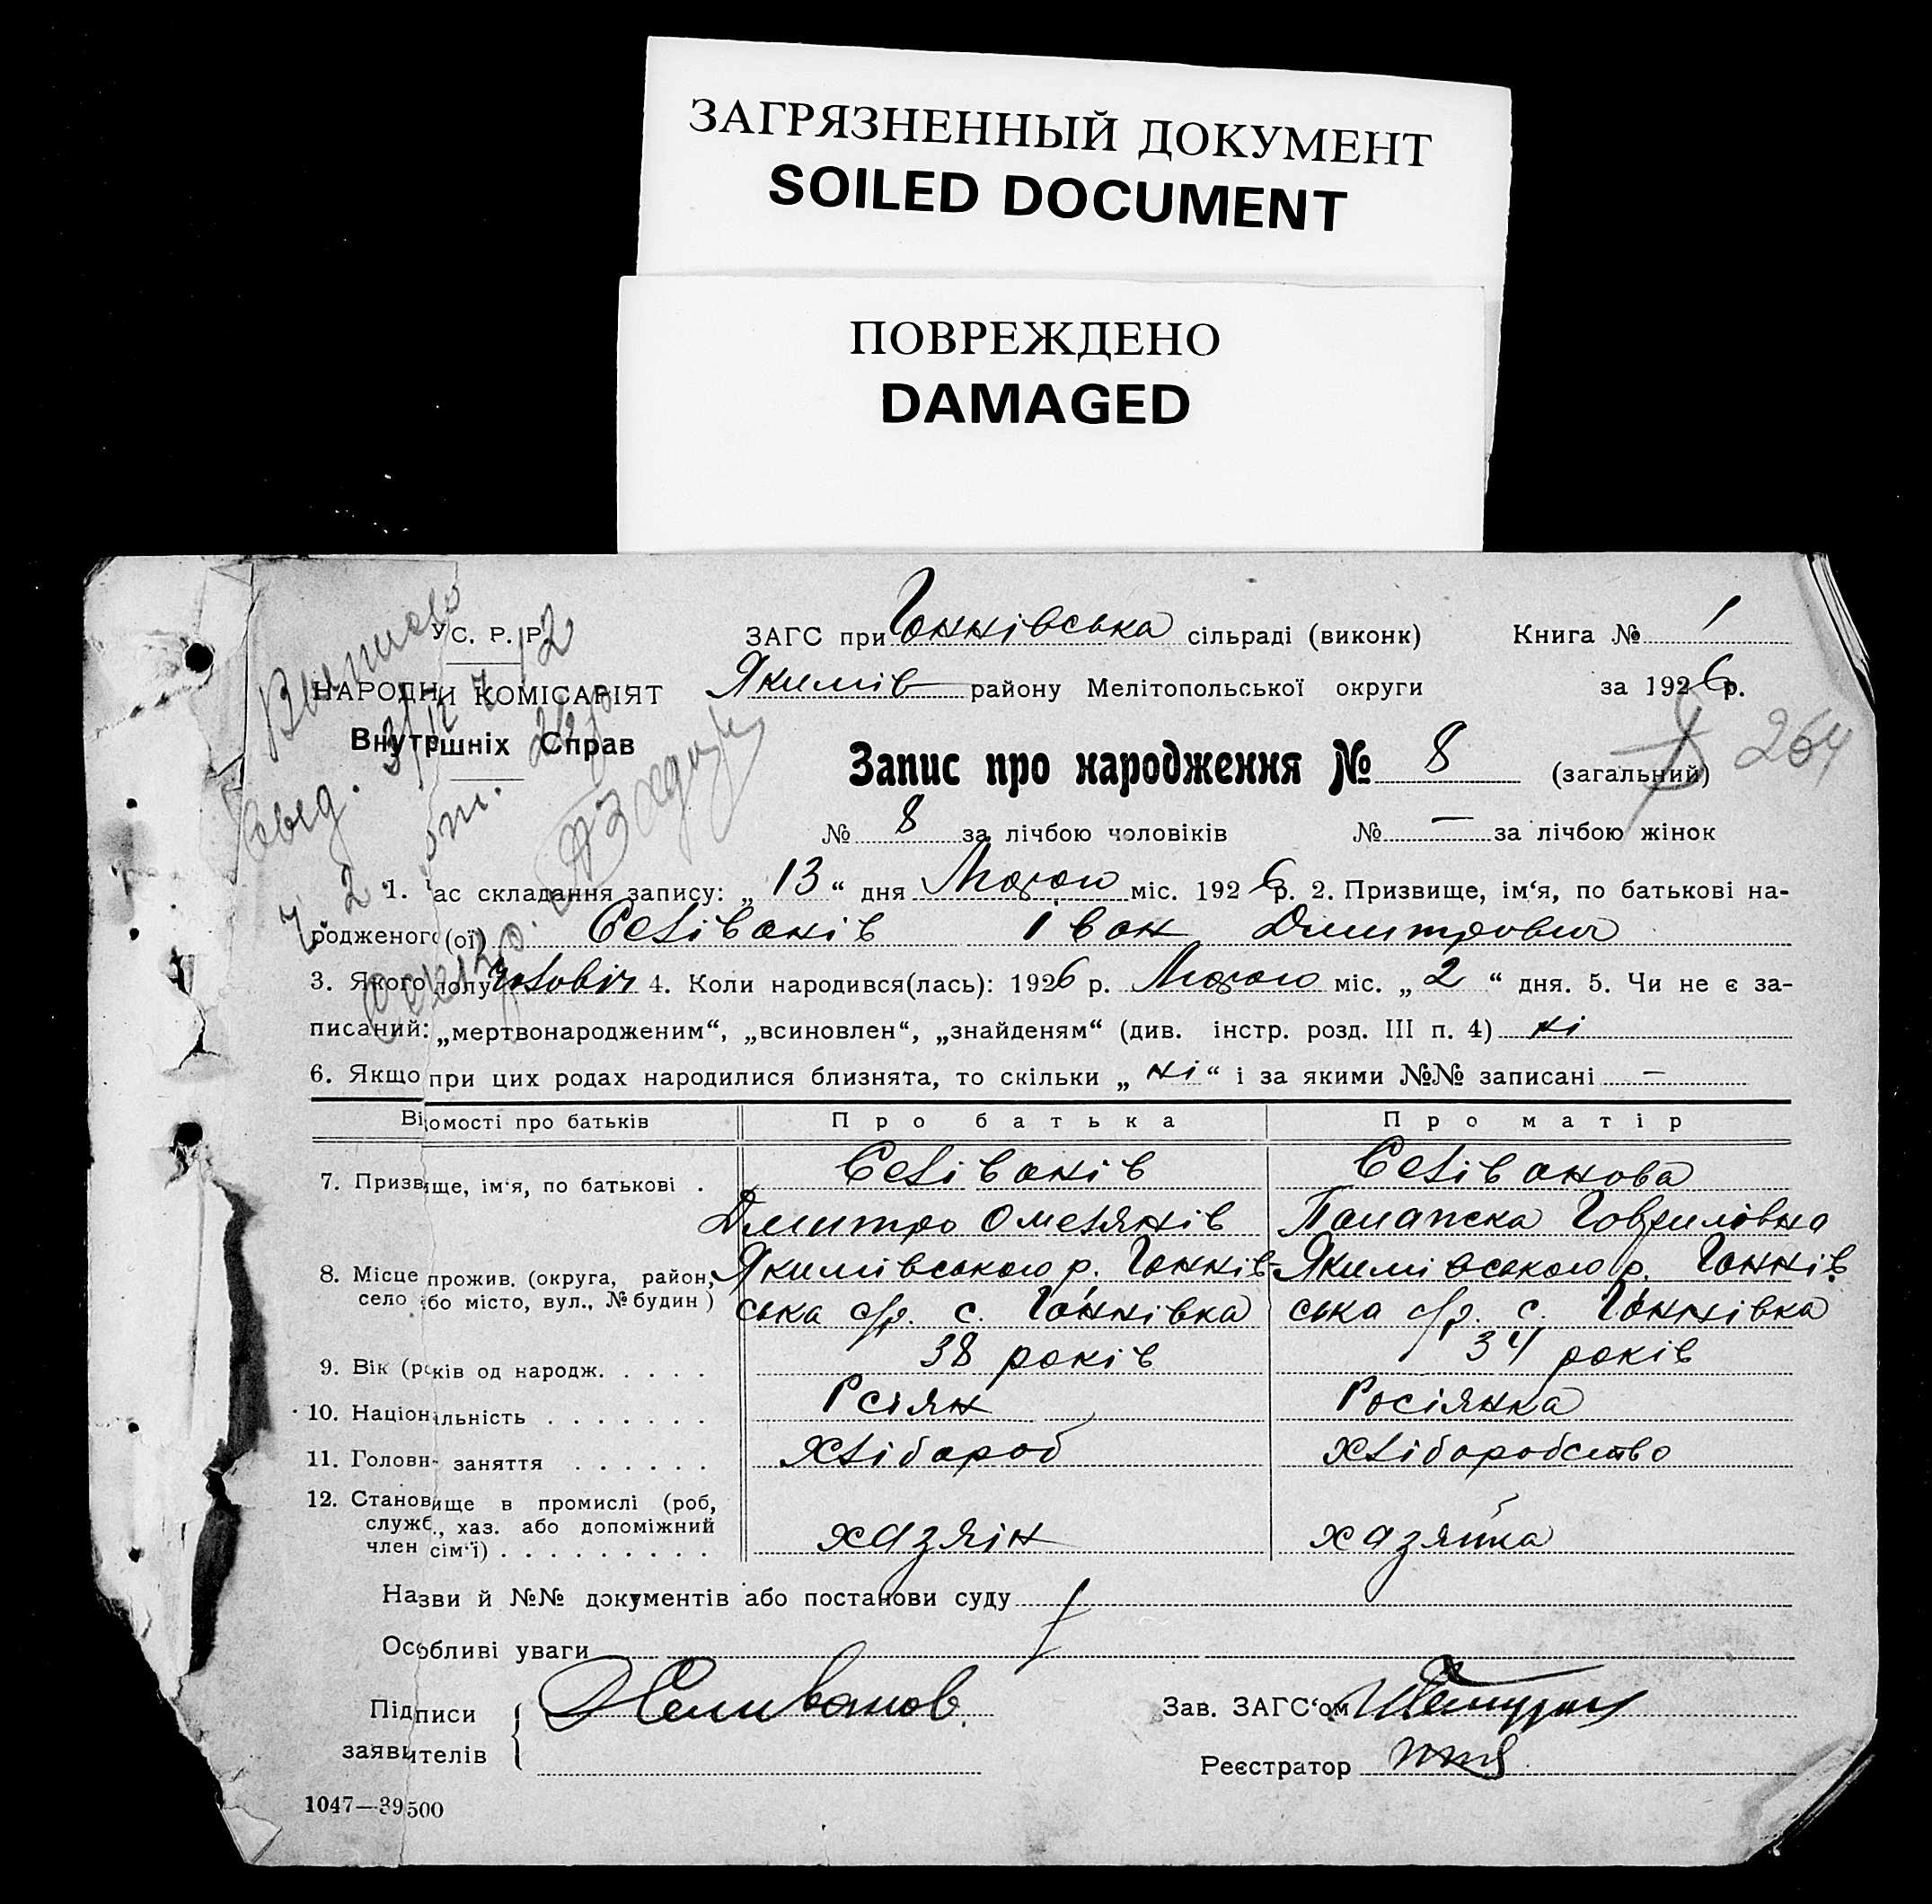 ЗАГРЯЗНЕННЫЙ ДОКУМЕНТ
SOILED DOCUMENT
ПОВРЕЖДЕНО
DAMAGED
У С. Р. Р. ЗАГС при Ганнівська сільраді (виконк) Книга № 1
НАРОДНИ КОМІСАРІЯТ Якимів району Мелітопольської округи за 1926 р.
Внутрішніх Справ
Запис про народження № 8 (загальний) 264
№ 8 за лічбою чоловіків № — за лічбою жінок
1. Час складання запису: „ 13 “ дня Лютого міс. 1926 р. 2. Призвище, ім‘я, по батькові на-
родженого(ої) Селіванів Іван Дмитрович
3. Якого полу чоловіч 4. Коли народився(лась): 1926 р. Лютого міс. „ 2 “ дня. 5. Чи не є за-
писаний: „мертвонародженим“, „всиновлен“, „знайденям“ (див. інстр. розд. III п. 4) ні
6. Якщо при цих родах народилися близнята, то скільки „ ні “ і за якими №№ записані —
Відомості про батьків Про батька Про матір
7. Призвище, ім‘я, по батькові . Селіванів Селіванова
Дмитро Омелянів Гавриловна
8. Місце прожив. (округа, район, Якимівського р. Ганнів- Якимівського р. Ганнів
село або місто, вул., № будин ) ська с/р. с. Ганнівка ська с/р. с. Ганнівка
9. Вік (років од народж. . . . . 38 років 34 років
10. Національність . . . . . . . Рсіян Росіянка
11. Головн- заняття . . . . . . хлібороб хліборобство
12. Становище в промислі (роб,
служб., хаз. або допоміжний
член сім‘ї) . . . . . . . . . хазяін хазяйка
Назви й №№ документів або постанови суду
Особливі уваги
Підписи Селиванов Зав. ЗАГС‘ом
заявителів Реєстратор
1047—39500